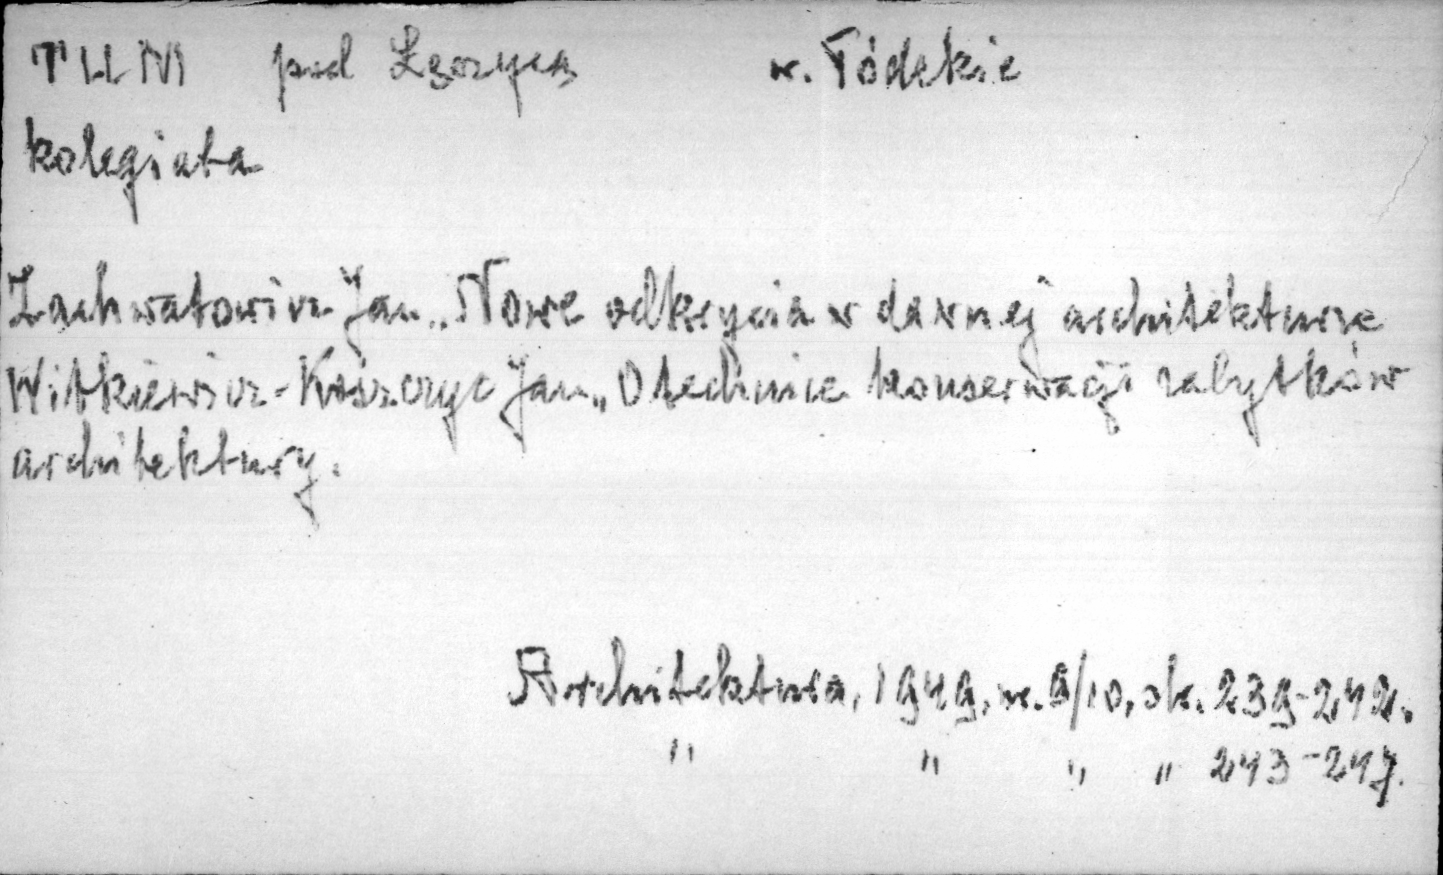 TUM pod Łęczycą w. Łódzkie
kolegiata
Zachwatowicz Jan „Nowe odkrycia w dawnej architekturze
Witkiewicz-Koszczyc Jan „O technice konserwacji zabytków
architektury.
Architektura, 1949, nr. 9/10, str. 239-242.
" " " " 243-247.